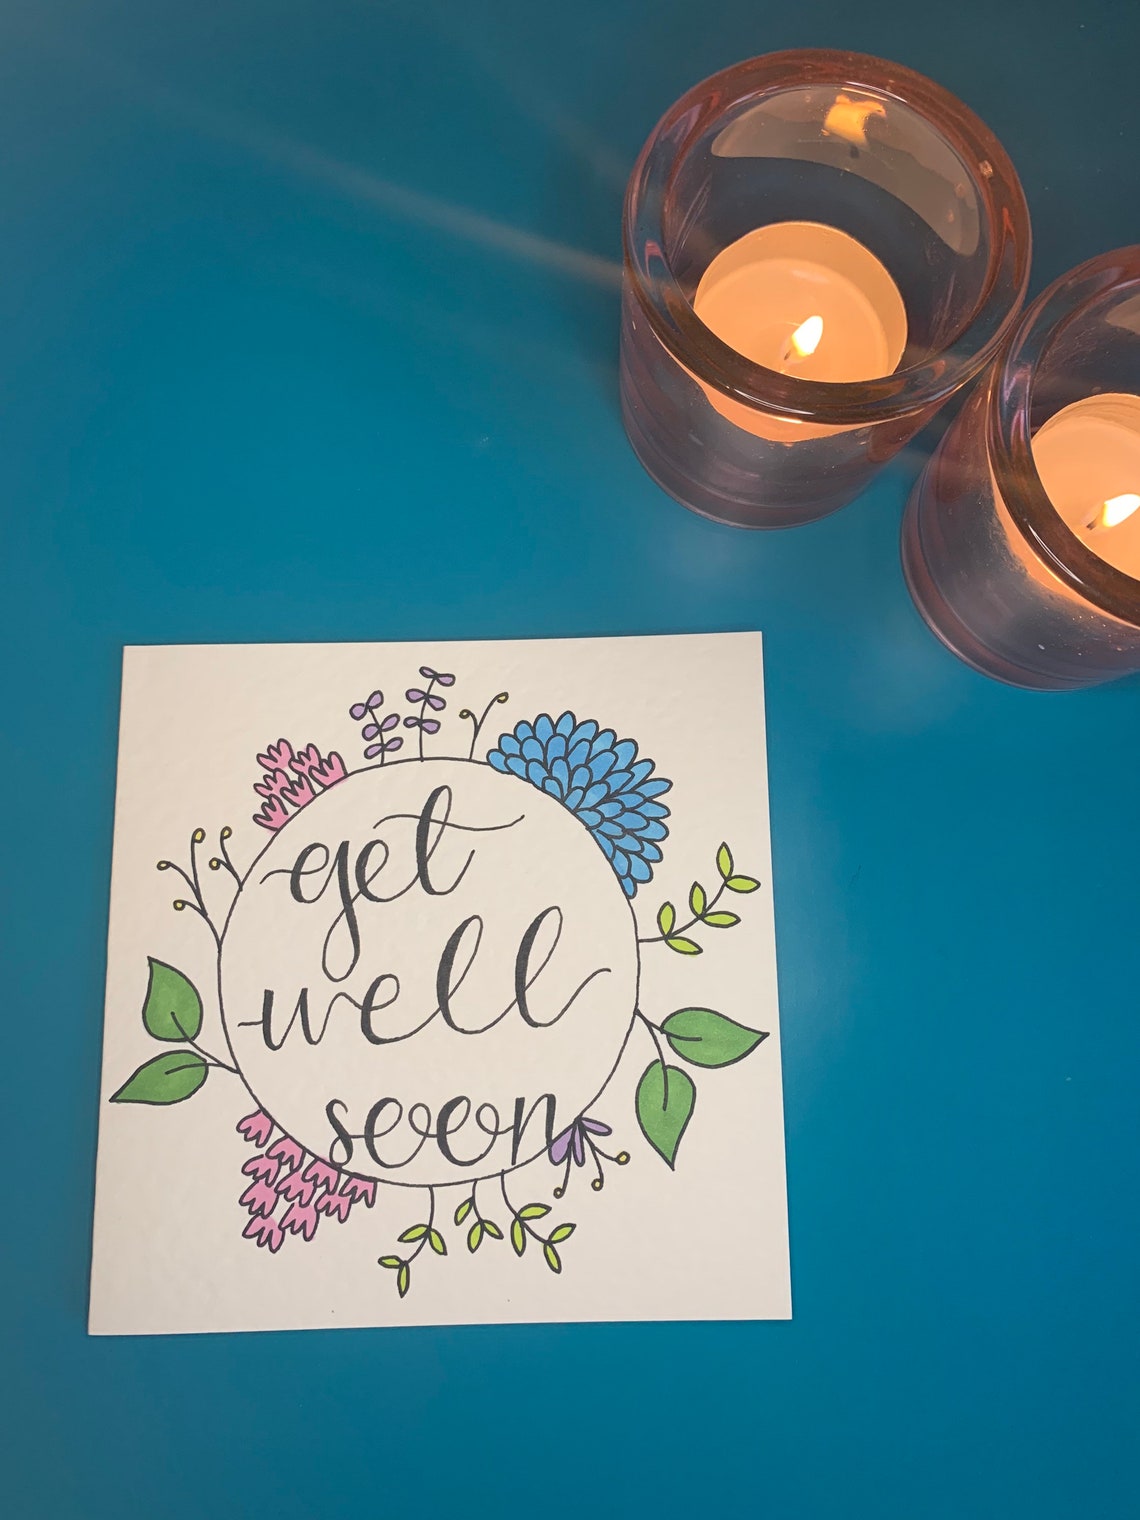 get
well
soon